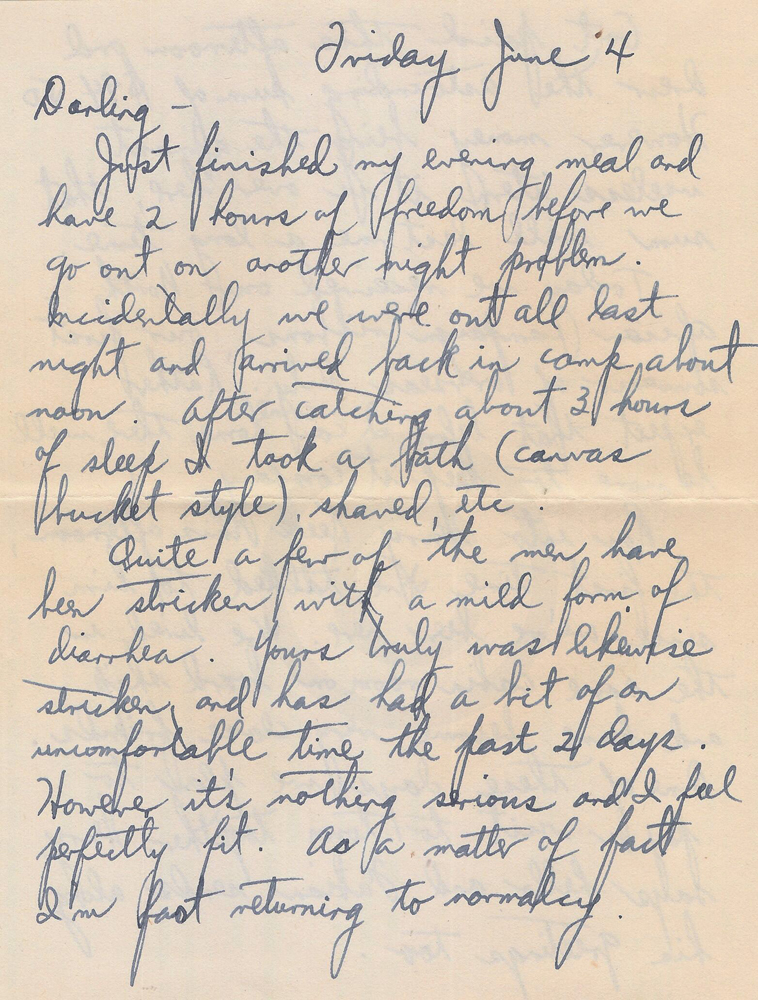 Friday June 4
Darling -
Just finished my evening meal and
have 2 hours of freedom before we
go out on another night problem.
Incidentally we were out all last
night and arrived back in camp about
noon. After catching about 3 hours
of sleep I took a bath (canvas
bucket style), shaved, etc.
Quite a few of the men have
been stricken with a mild form of
diarrhea. Yours truly was likewise
stricken, and has had a bit of an
uncomfortable time the past 2 days.
However it's nothing serious and I feel
perfectly fit. As a matter of fact
I'm fast returning to normalcy.